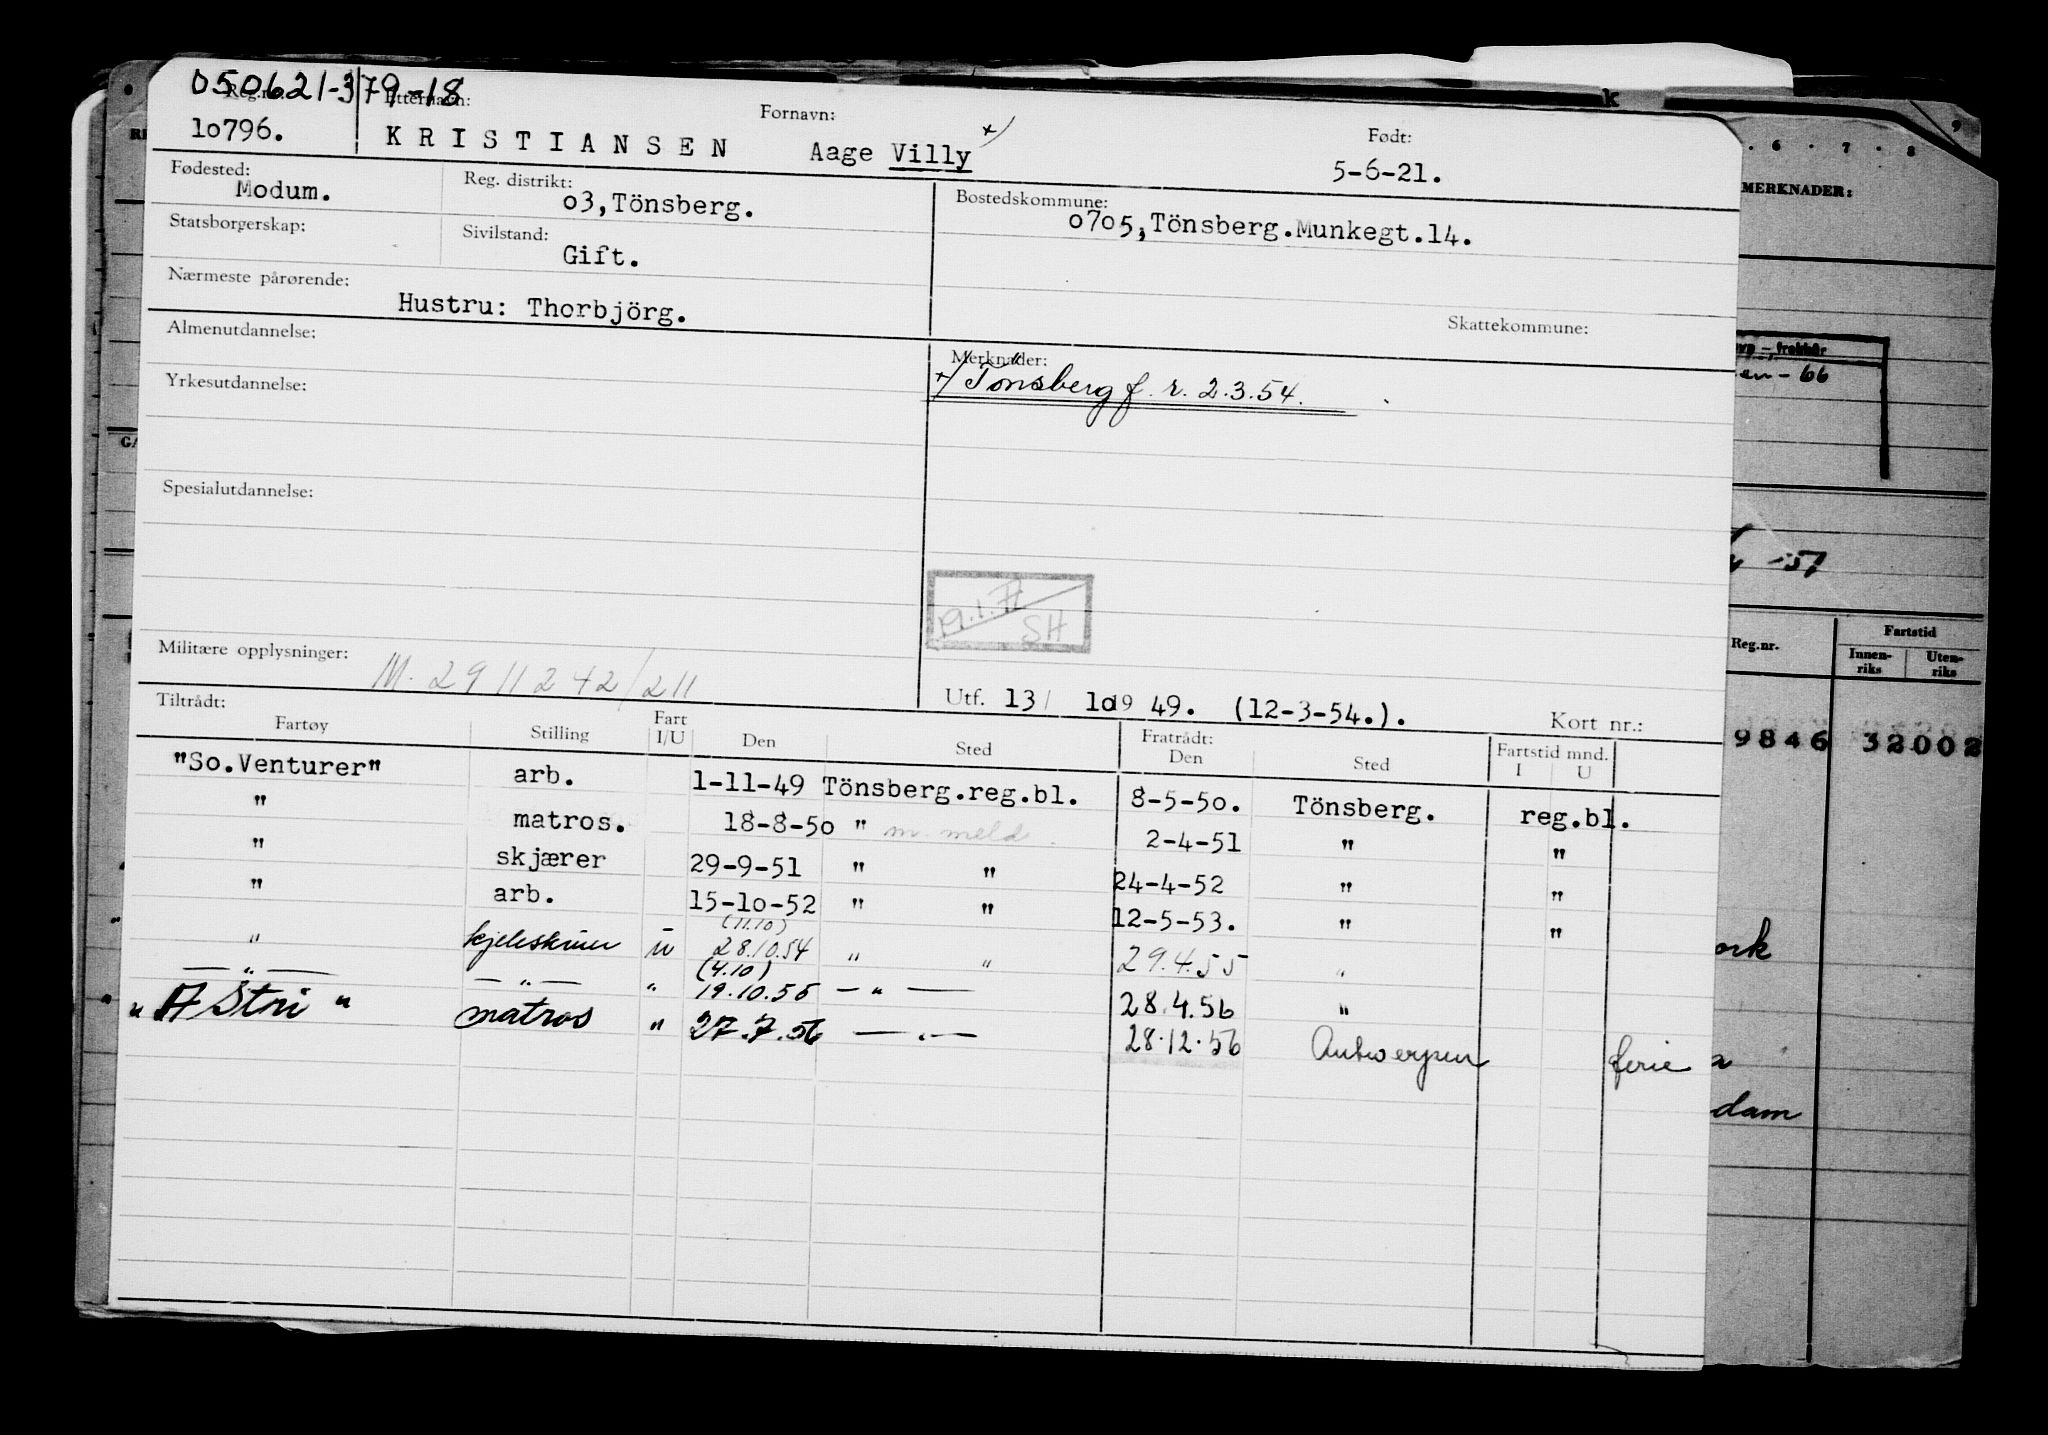 050621-379-18
Reg.nr. Etternavn: Fornavn: Født:
10796. KRISTIANSEN Aage Villy x) 5-6-21.
Fødested: Reg. distrikt: Bostedskommune:
Modum. 03,Tönsberg. 0705,Tönsberg.Munkegt.14.
Statsborgerskap: Sivilstand:
Gift.
Nærmeste pårørende:
Hustru: Thorbjörg.
Skattekommune:
Almenutdannelse: Merknader:
x/ Tönsberg f. r. 2.3.54.
Yrkesutdannelse:
Spesialutdannelse:
19.1.77
SH
Militære opplysninger: M. 2911242/211
Utf. 13/ 10 19 49. (12-3-54.). Kort nr.:
Tiltrådt: Fratrådt:
Fartøy Stilling Fart I/U Den Sted Den Sted Fartstid mnd. I U
"So.Venturer" arb. 1-11-49 Tönsberg.reg.bl. 8-5-50. Tönsberg. reg.bl.
" matros. 18-8-50 " m. meld. 2-4-51 " "
" skjærer 29-9-51 " " 24-4-52 " "
" arb. 15-10-52 " " 12-5-53. " "
(11.10)
" u 28.10.54 " " 29.4.55 "
(4.10)
— " — — " — " 19.10.55 — " — 28.4.56 "
" matros " 27.7.56 — " — 28.12.56 Antwerpen ferie
MERKNADER:
6 · 7 · 8
9
-66
-57
Reg.nr. Fartstid
Innenriks Utenriks
9846 32002
ork
dam